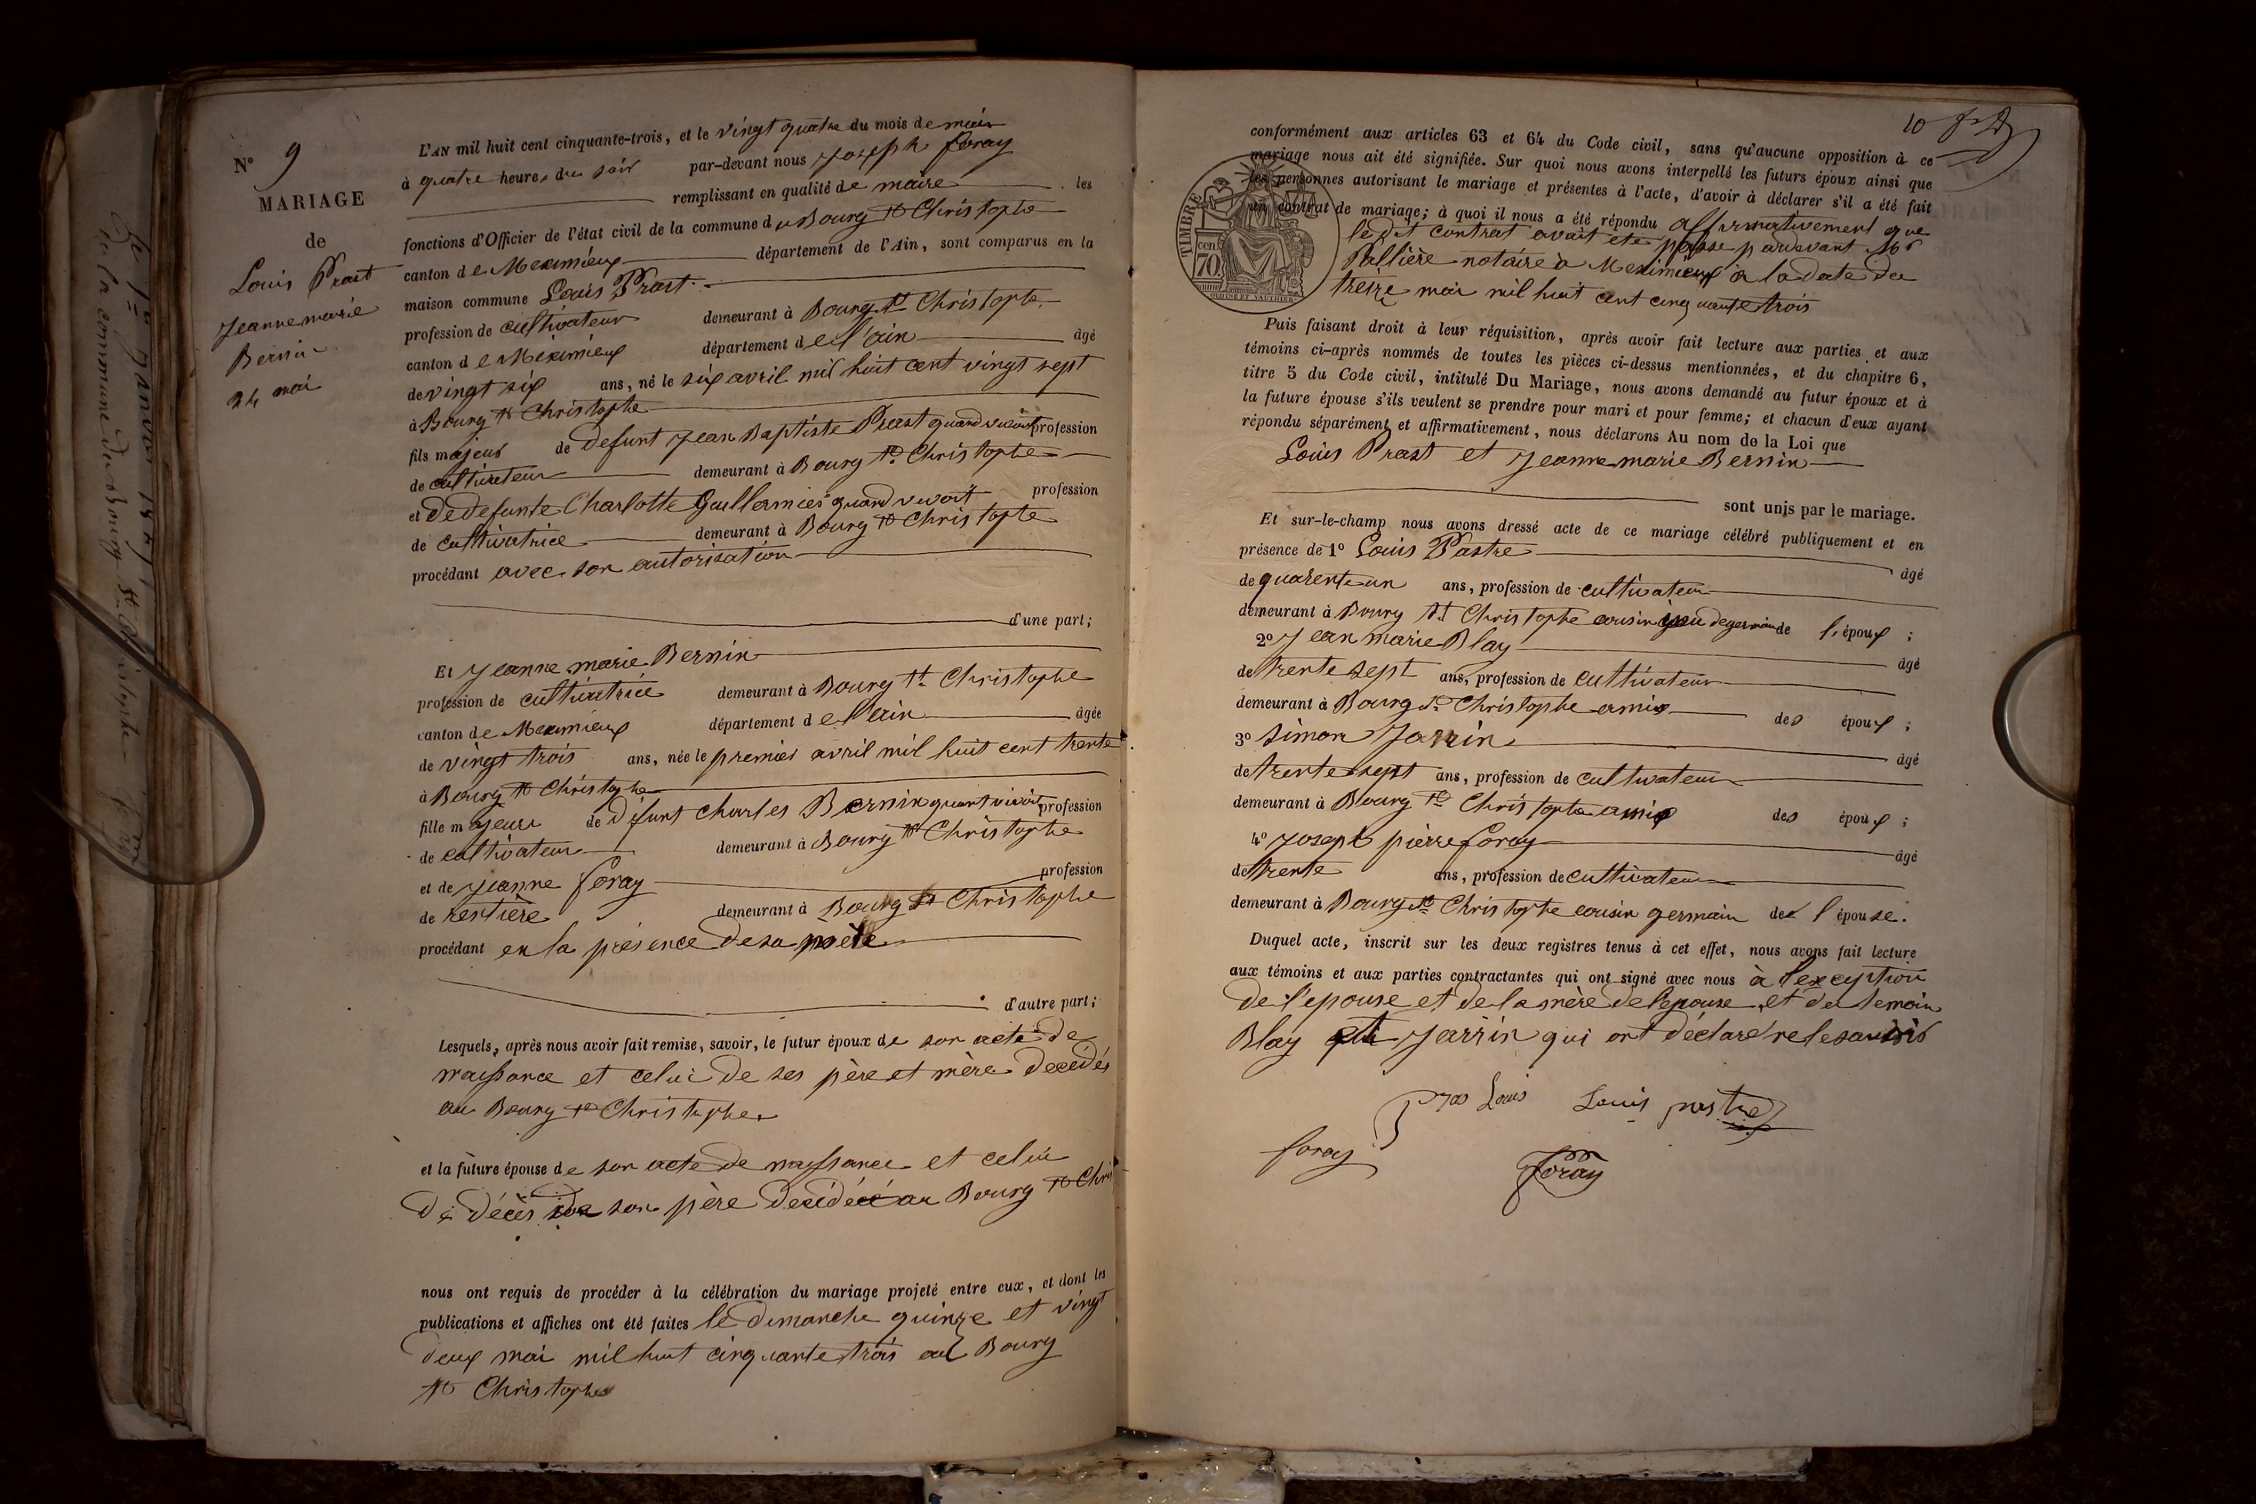 N° 9
MARIAGE
de
Louis Prost
Jeanne marie
Bernin
24 mai
L'AN mil huit cent cinquante-trois, et le vingt quatre du mois de mai
à quatre heures du soir par-devant nous Joseph foray
remplissant en qualité de maire les
fonctions d'Officier de l'état civil de la commune du Bourg St Christophe
canton de Meximieux département de l'Ain, sont comparus en la
maison commune Louis Prost
profession de cultivateur demeurant à Bourg St Christophe
canton de Meximieux département de l'ain âgé
de vingt six ans, né le six avril mil huit cent vingt sept
à Bourg St Christophe
fils majeur de defunt Jean Baptiste Prost quand vivait profession
de cultivateur demeurant à Bourg St Christophe
et de defunte Charlotte quand vivoit profession
de cultivatrice demeurant à Bourg St Christophe
procédant avec son autorisation
d'une part;
Et Jeanne marie Bernin
profession de cultivatrice demeurant à Bourg St Christophe
canton de Meximieux département de l'ain âgée
de vingt trois ans, née le premier avril mil huit cent trente
à Bourg St Christophe
fille majeure de défunt Charles Bernin quant vivoit profession
de cultivateur demeurant à Bourg St Christophe
et de Jeanne foray profession
de rentière demeurant à Bourg St Christophe
procédant en la présence de sa mère
d'autre part;
Lesquels, après nous avoir fait remise, savoir, le futur époux de son acte de
naissance et celui de ses père et mère decedés
au Bourg St Christophe
et la future épouse de son acte de naissance et celui
de décès de son père decedé au Bourg St Chris
nous ont requis de procéder à la célébration du mariage projeté entre eux, et dont les
publications et affiches ont été faites le dimanche quinze et vingt
deux mai mil huit cinquante trois au Bourg
St Christophe
10
conformément aux articles 63 et 64 du Code civil, sans qu'aucune opposition à ce
mariage nous ait été signifiée. Sur quoi nous avons interpellé les futurs époux ainsi que
les personnes autorisant le mariage et présentes à l'acte, d'avoir à déclarer s'il a été fait
un contrat de mariage; à quoi il nous a été répondu affirmativement que
ledit contrat avait été passé pardevant Me
Pallière notaire à Meximieux à la date du
treize mai mil huit cent cinquante trois
TIMBRE
cen 70
Puis faisant droit à leur réquisition, après avoir fait lecture aux parties et aux
témoins ci-après nommés de toutes les pièces ci-dessus mentionnées, et du chapitre 6,
titre 5 du Code civil, intitulé Du Mariage, nous avons demandé au futur époux et à
la future épouse s'ils veulent se prendre pour mari et pour femme; et chacun d'eux ayant
répondu séparément et affirmativement, nous déclarons Au nom de la Loi que
Louis Prost et Jeanne marie Bernin
sont unis par le mariage.
Et sur-le-champ nous avons dressé acte de ce mariage célébré publiquement et en
présence de 1° Louis Pastre âgé
de quarente un ans, profession de cultivateur
demeurant à Bourg St Christophe cousin de germain de l'époux ;
2° Jean marie Blay âgé
de trente sept ans, profession de cultivateur
demeurant à Bourg St Christophe amis des époux ;
3° Simon Jarrin âgé
de trente sept ans, profession de cultivateur
demeurant à Bourg St Christophe amis des époux ;
4° Joseph pierre foray âgé
de trente ans, profession de cultivateur
demeurant à Bourg St Christophe cousin germain de l'épouse.
Duquel acte, inscrit sur les deux registres tenus à cet effet, nous avons fait lecture
aux témoins et aux parties contractantes qui ont signé avec nous à l'exception
de l'epouse et de la mère de l'epouse et du temoin
Blay et Jarrin qui ont déclaré ne le savoir
Louis Louis pastre
foray foray